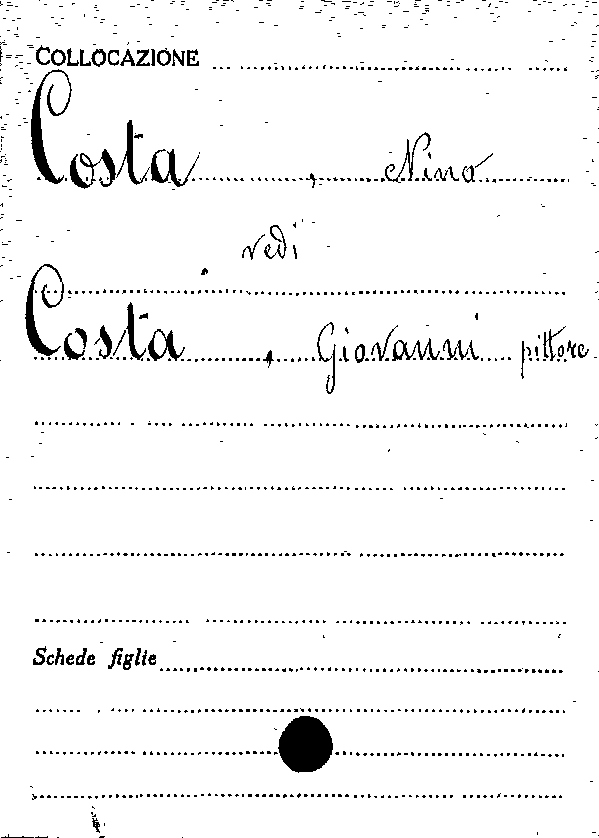 COLLOCAZIONE
Costa, Nino
vedi
Costa, Giovanni pittore
Schede figlie